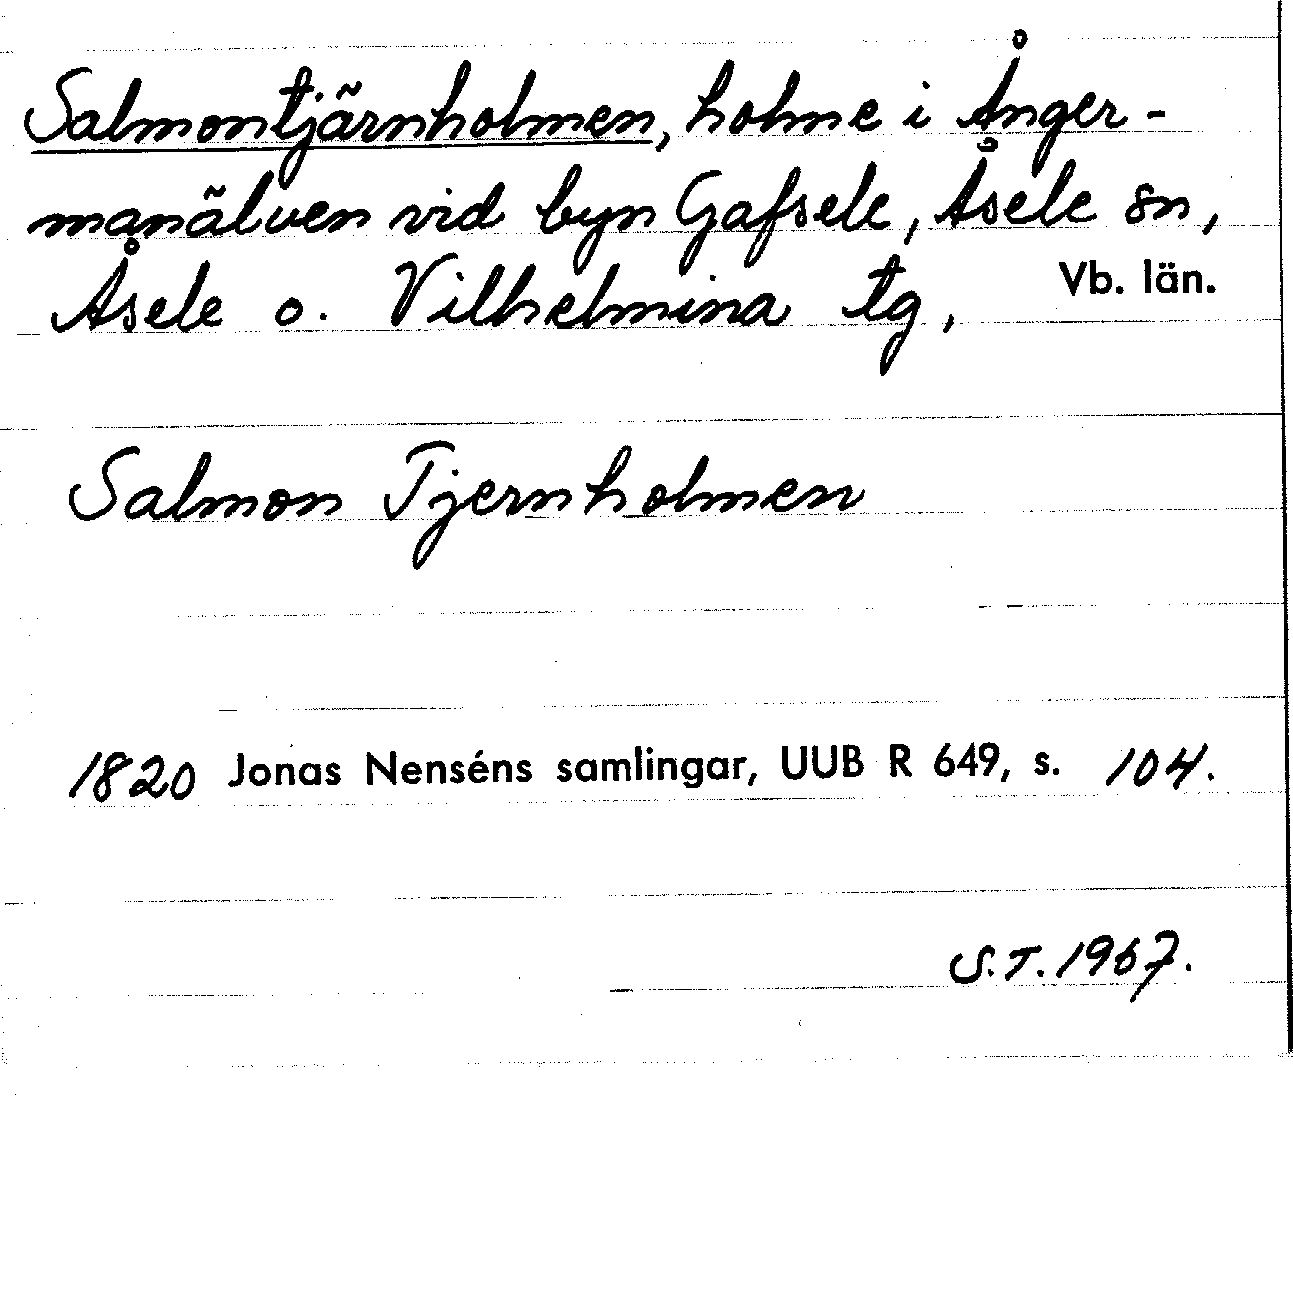 Salmontjärnholmen, holme i Ånger-
manälven vid byn Gafsele, Åsele sn,
Åsele o. Vilhelmina tg, Vb. län.
Salmon Tjernholmen
1820 Jonas Nenséns samlingar, UUB R 649, s. 104.
S.T. 1967.